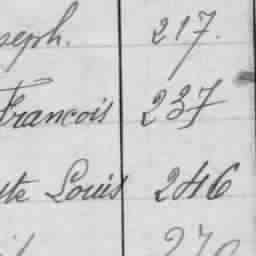 seph. 217.
Francois 237
te Louis 246